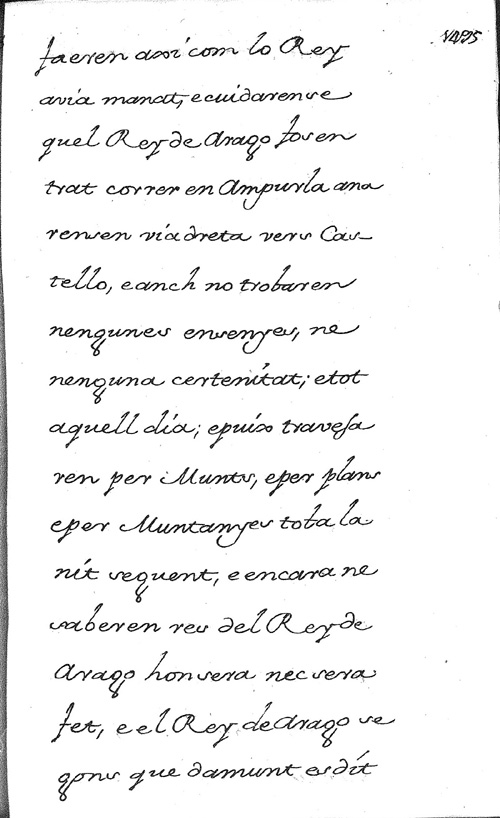 faeren axi com lo Rey
avia manat, e cuidarense
quel Rey de Arago fos en
trat correr en Ampurla ana
rensen via dreta vers Cas
tello, e anch no trobaren
nengunes ensenyes, ne
nenguna certenitat; e tot
aquell dia; e puix travesa
ren per Munts, e per plans
e per Muntanyes tota la
nit seguent, e encara ne
saberen res del Rey de
Arago hon sera nec sera
fet, e el Rey de Arago se
gons que damunt es dit